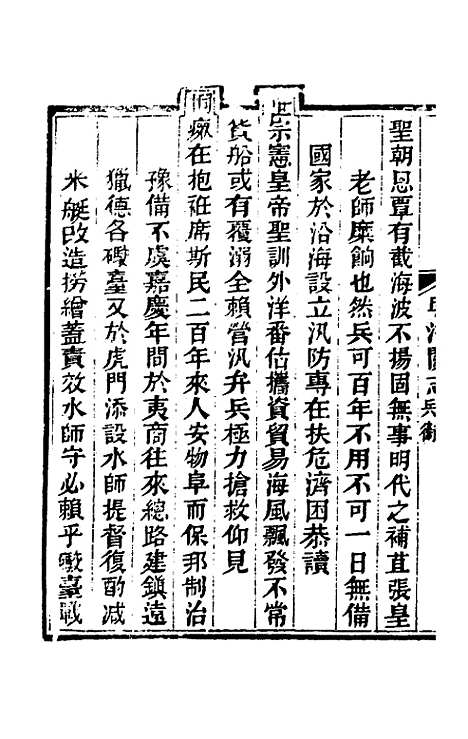 粵海關志兵衛
聖朝恩覃有截海波不揚固無事明代之補苴張皇
老師糜餉也然兵可百年不用不可一日無備
國家於沿海設立汛防專在扶危濟困恭讀
世宗憲皇帝聖訓外洋番估攜資貿易海風飄發不常
貨船或有覆溺全賴營汛弁兵極力搶救仰見
痌瘝在抱衽席斯民二百年來人安物阜而保邦制治
豫備不虞嘉慶年間於夷商往來總路建鎮遠
獵德各礮臺又於虎門添設水師提督復酌減
米艇改造撈繒蓋責效水師守必賴乎礮臺戰